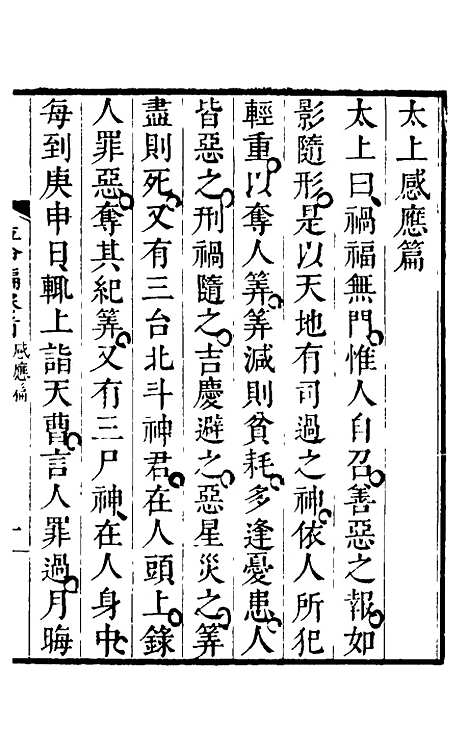 太上感應篇
太上曰禍福無門惟人自召善惡之報如
影隨形是以天地有司過之神依人所犯
輕重以奪人筭筭減則貧耗多逢憂患人
皆惡之刑禍隨之吉慶避之惡星災之筭
盡則死又有三台北斗神君在人頭上錄
人罪惡奪其紀筭又有三尸神在人身中
每到庚申日輒上詣天曹言人罪過月晦
感應篇
一